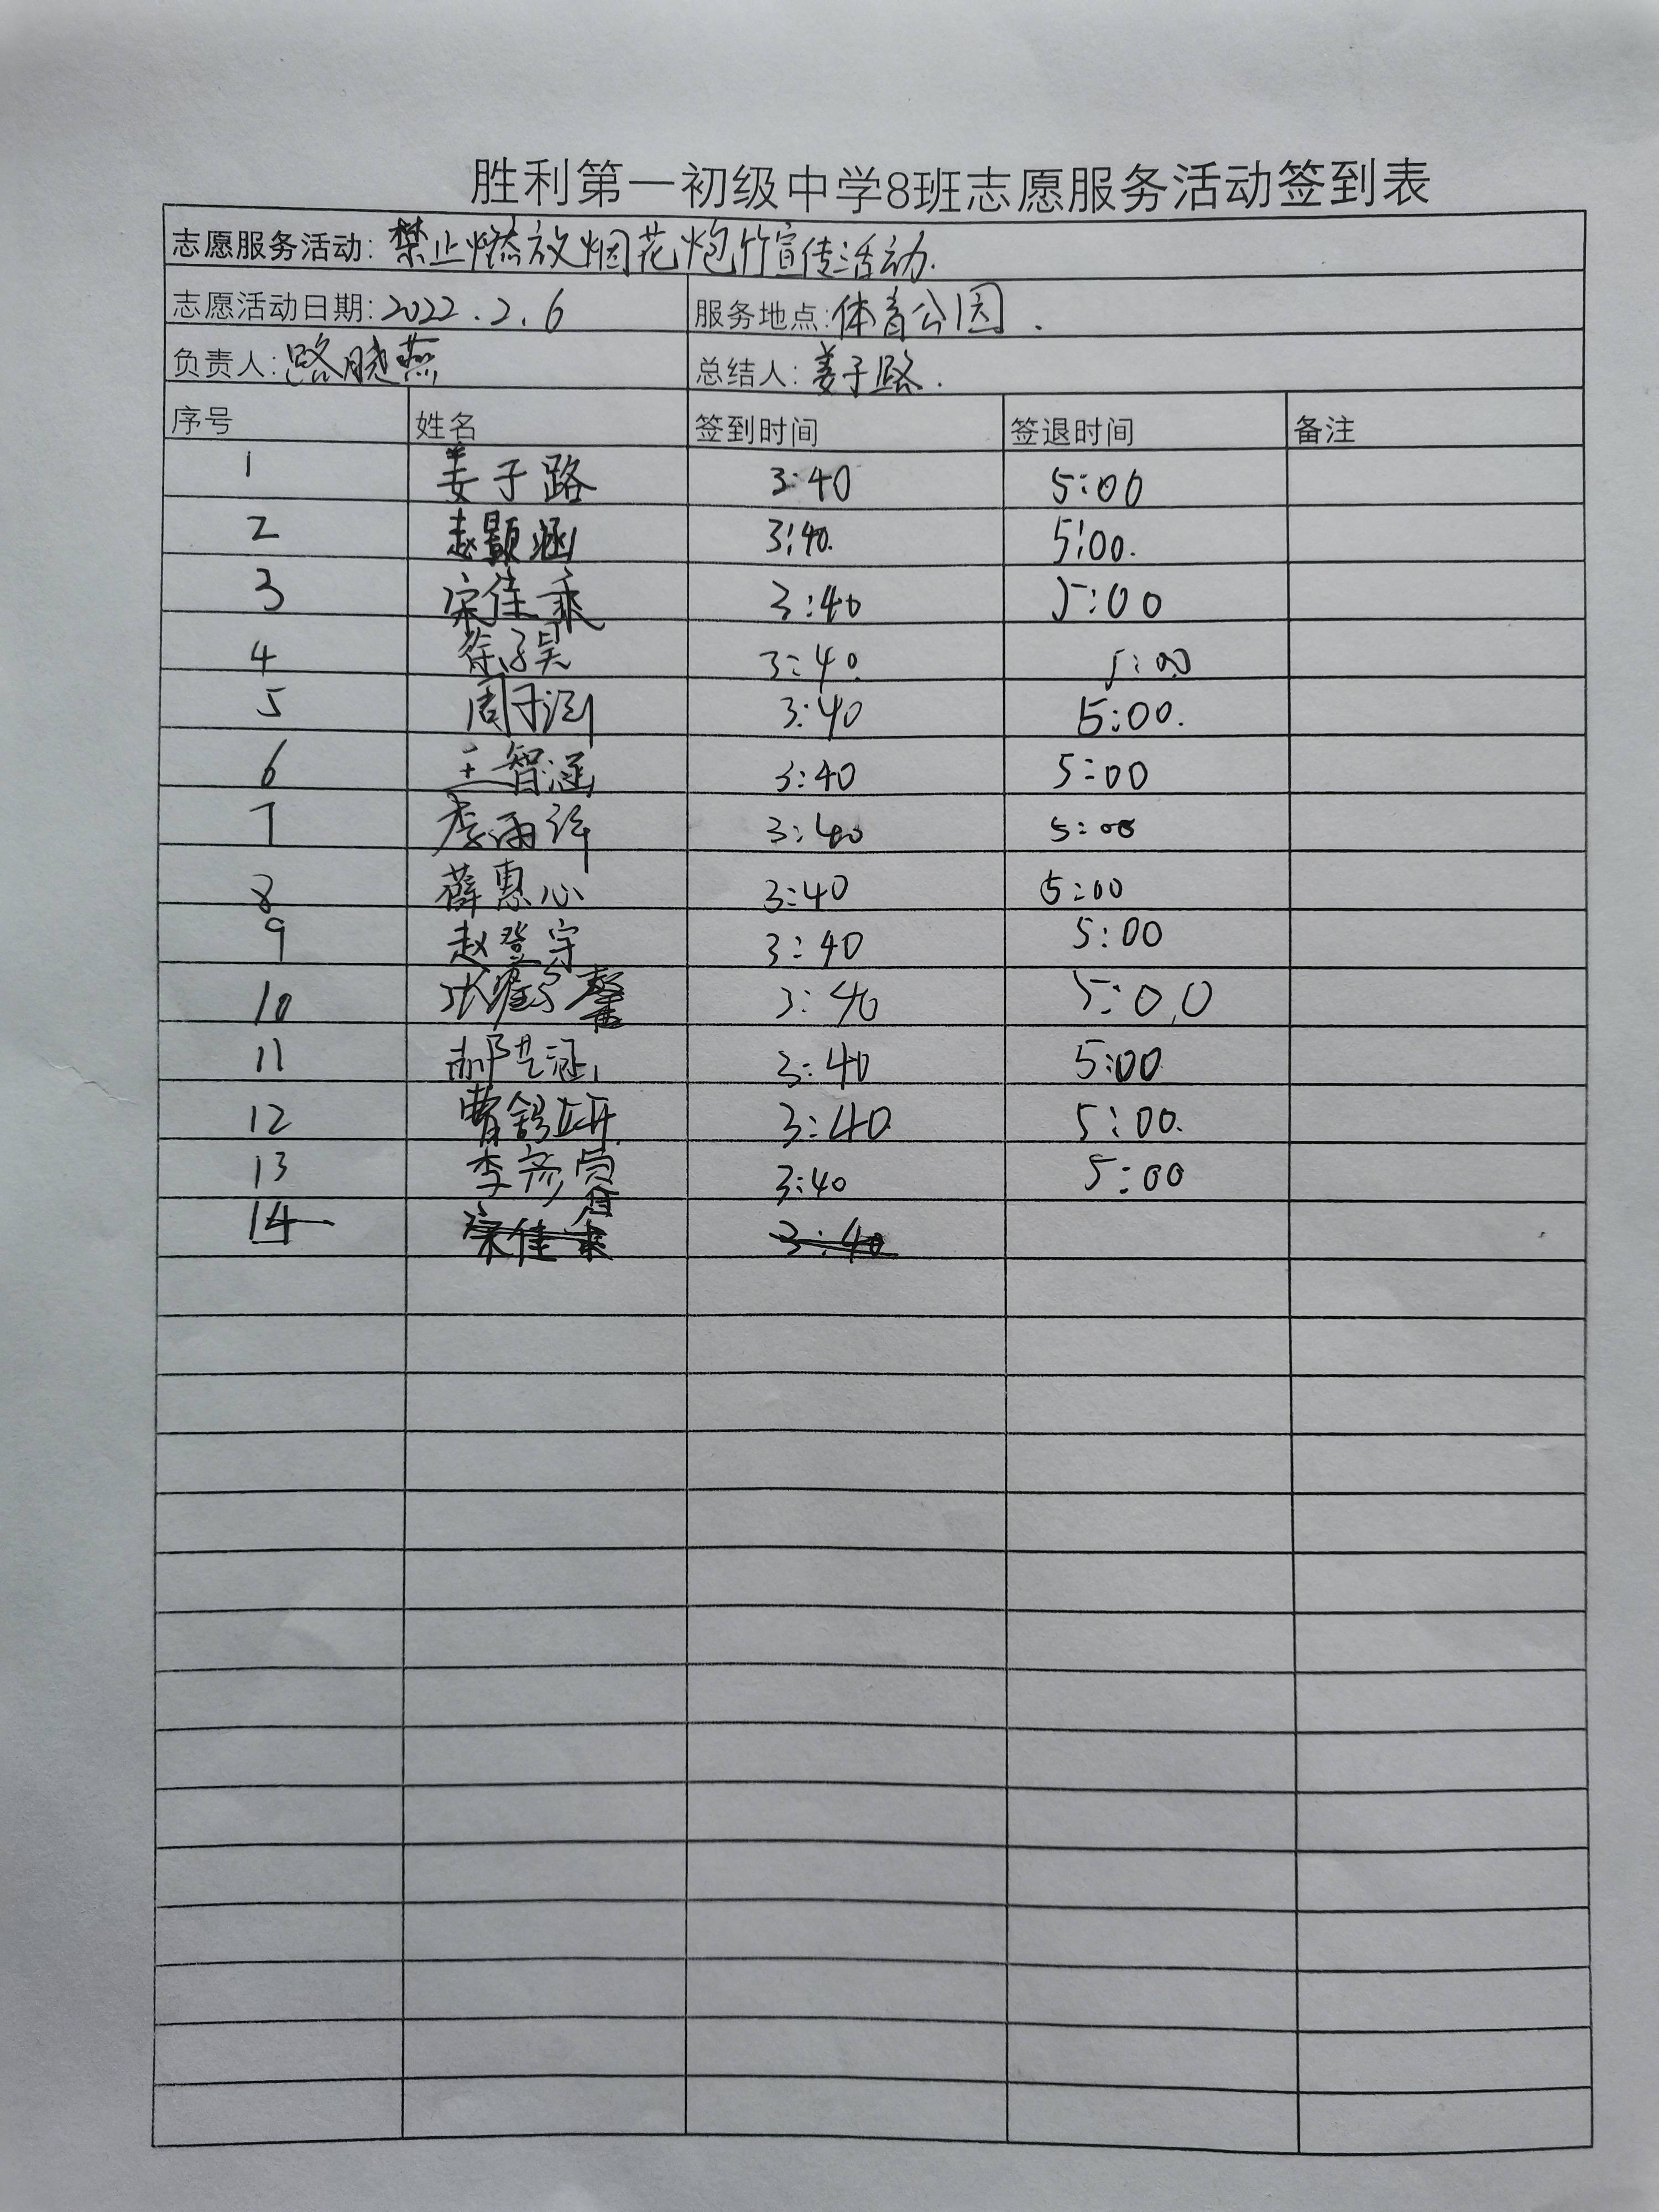 胜利第一初级中学8班志愿服务活动签到表
志愿服务活动: 禁止燃放烟花炮竹宣传活动.
志愿活动日期: 2022.2.6 服务地点: 体育公园.
负责人: 路晓燕 总结人: 姜子路.
序号 姓名 签到时间 签退时间 备注
1 姜子路 3:40 5:00
2 赵颢涵 3:40. 5:00.
3 宋佳乘 3:40 5:00
4 徐子昊 3:40. 5:00
5 周子涵 3:40 5:00.
6 王智涵 3:40 5:00
7 李雨 3:40 5:00
8 薛惠心 3:40 5:00
9 赵登宇 3:40 5:00
10 张馨 3:40 5:00
11 郝艺涵 3:40 5:00
12 曹舒妍 3:40. 5:00.
13 李彦 3:40 5:00
14 宋佳 3:40